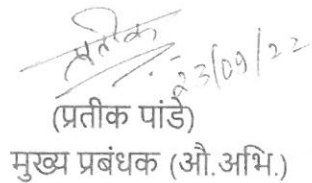 प्रतीक
23/09/22
(प्रतीक पांडे)
मुख्य प्रबंधक (औ.अभि.)